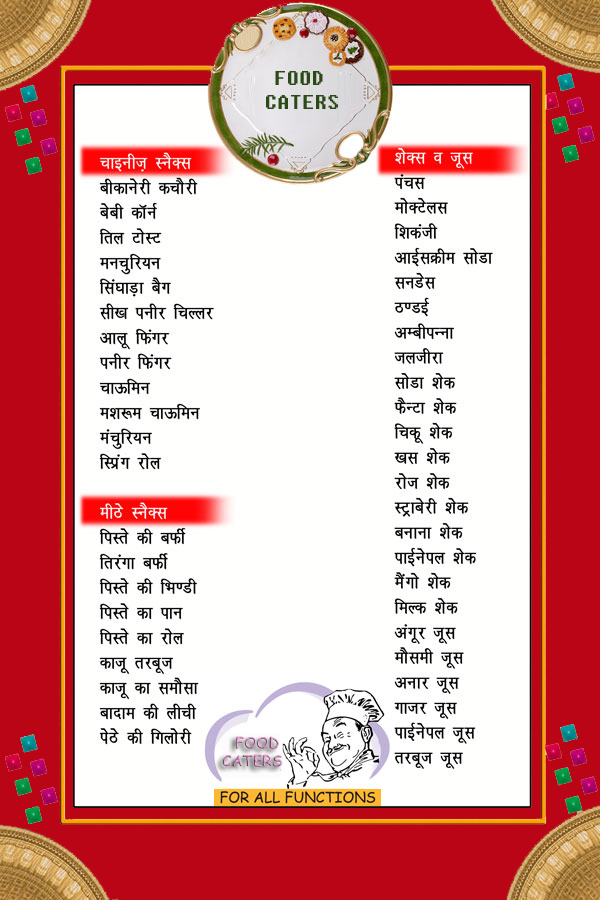 FOOD
CATERS
चाइनीज़ स्नैक्स
बीकानेरी कचौरी
बेबी कॉर्न
तिल टोस्ट
मनचुरियन
सिंघाड़ा बैग
सीख पनीर चिल्लर
आलू फिंगर
पनीर फिंगर
चाऊमिन
मशरूम चाऊमिन
मंचुरियन
स्प्रिंग रोल
मीठे स्नैक्स
पिस्ते की बर्फी
तिरंगा बर्फी
पिस्ते की भिण्डी
पिस्ते का पान
पिस्ते का रोल
काजू तरबूज
काजू का समौसा
बादाम की लीची
पेठे की गिलोरी
शेक्स व जूस
पंचस
मोक्टेलस
शिकंजी
आईसक्रीम सोडा
सनडेस
ठण्डई
अम्बीपन्ना
जलजीरा
सोडा शेक
फैन्टा शेक
चिकू शेक
खस शेक
रोज शेक
स्ट्राबेरी शेक
बनाना शेक
पाईनेपल शेक
मैंगो शेक
मिल्क शेक
अंगूर जूस
मौसमी जूस
अनार जूस
गाजर जूस
पाईनेपल जूस
तरबूज जूस
FOOD
CATERS
FOR ALL FUNCTIONS